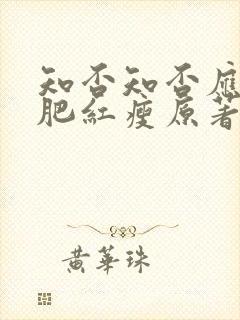 知否知否應
肥紅瘦原著
黃華珠